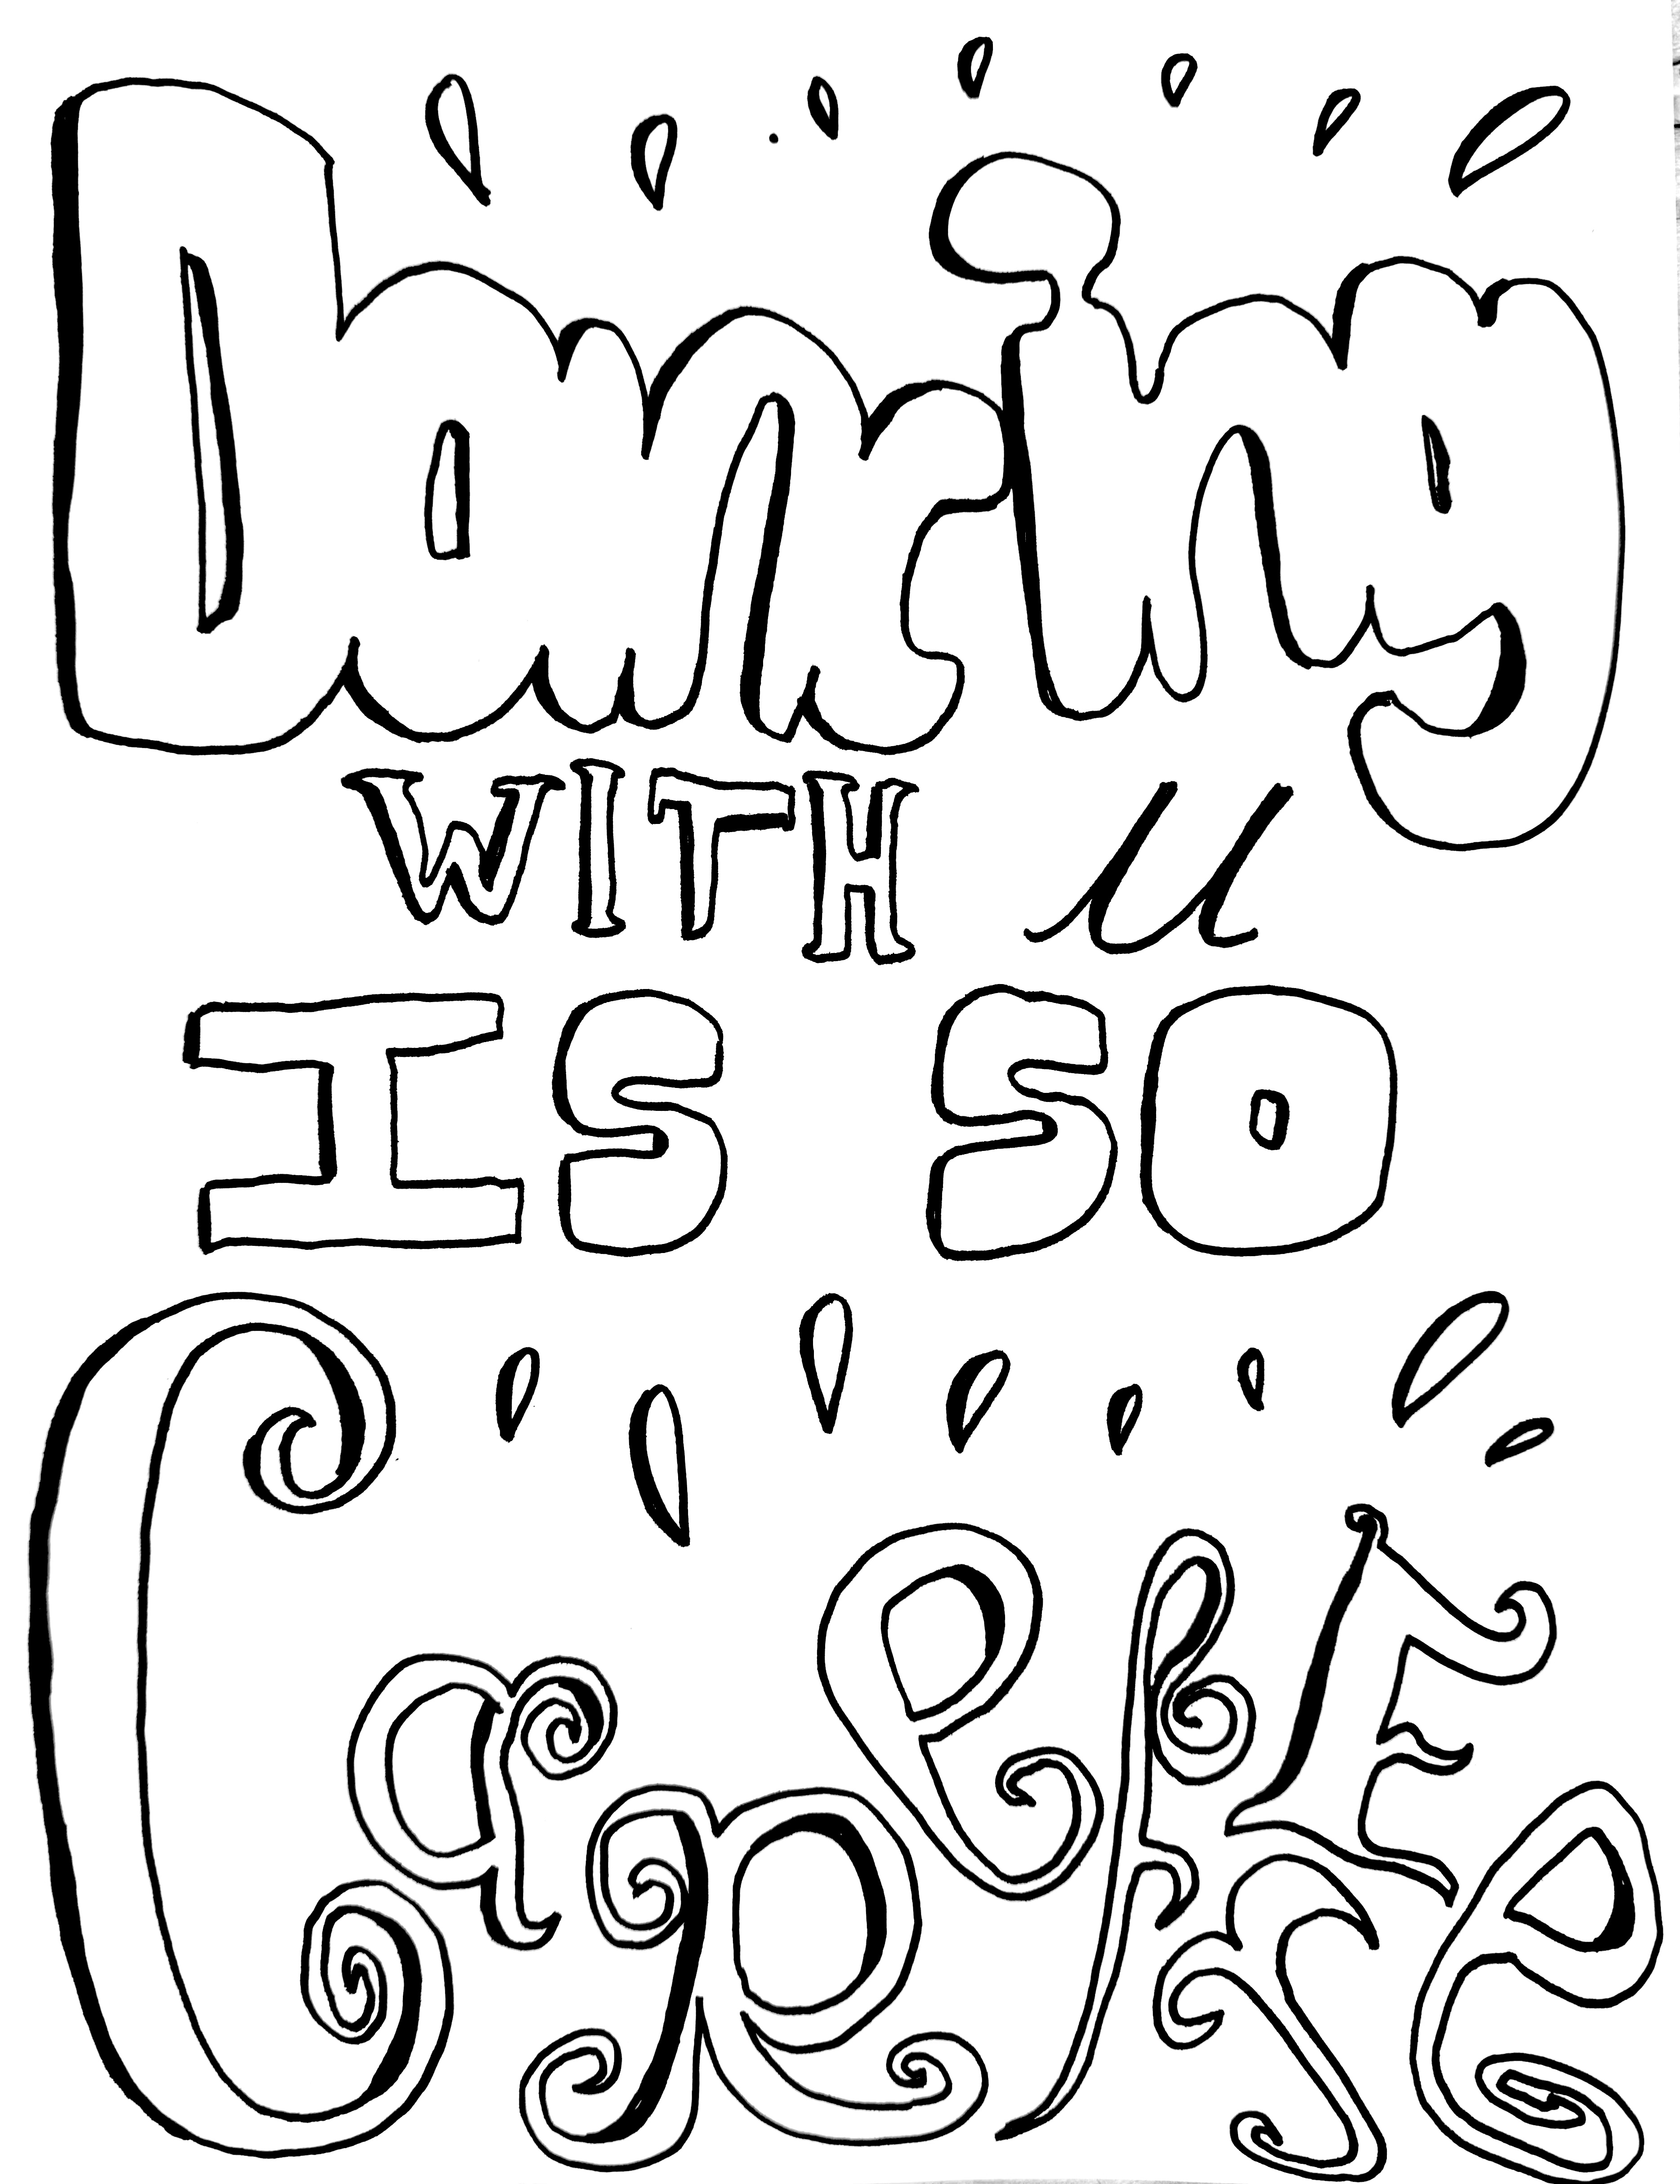 Dancing
WITH u
IS SO
CaRefrEe